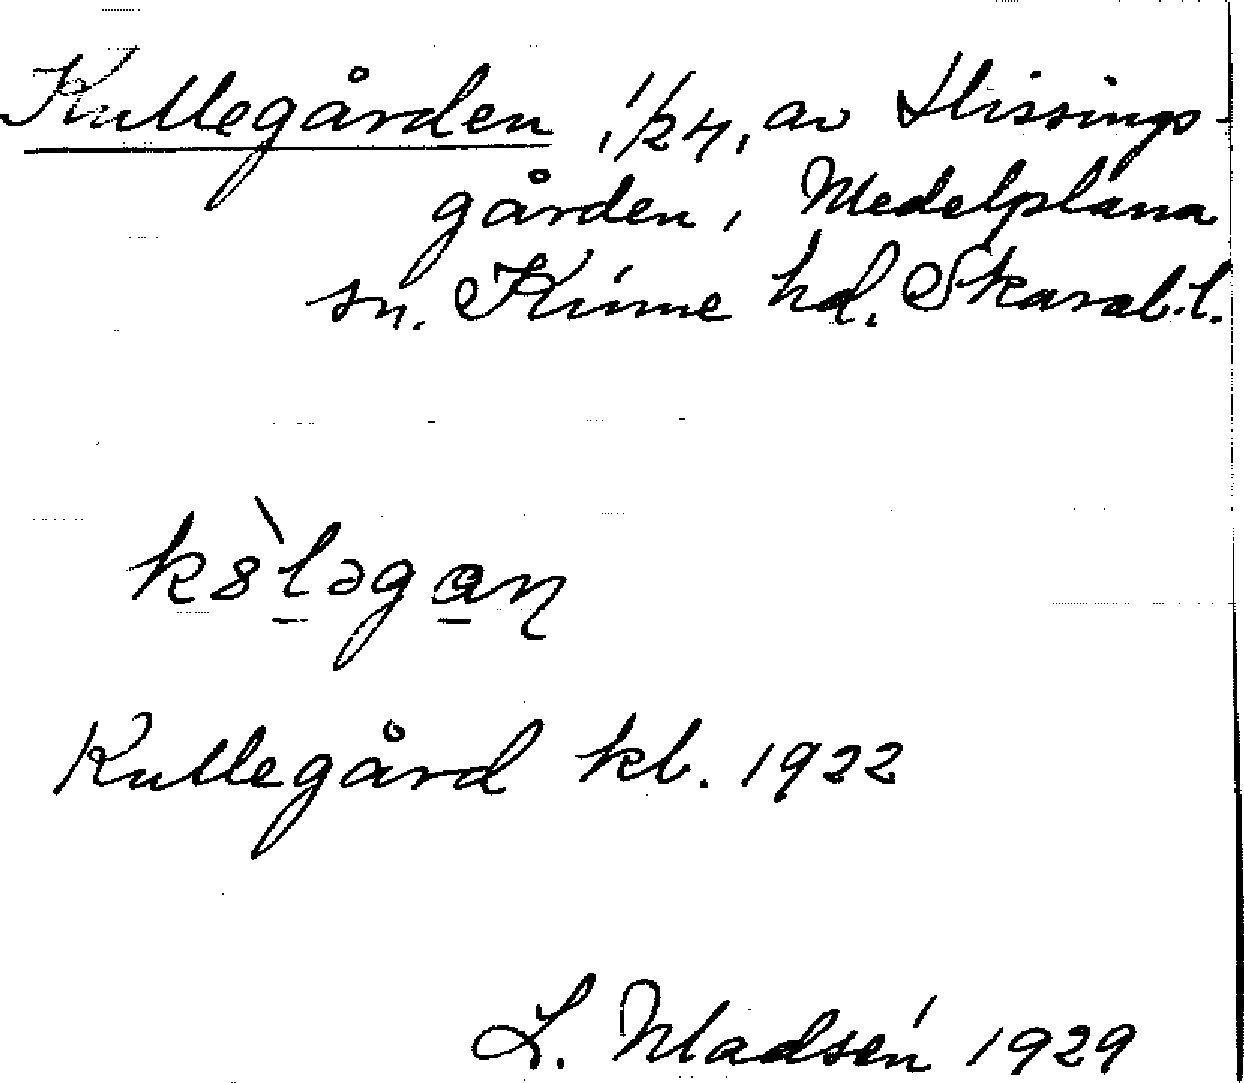 Kullegården, 1/24, av Hissings-
gården, Medelplana
sn. Kinne hd. Skarab.l.
Kullegård kb. 1922
L. Madsén 1929